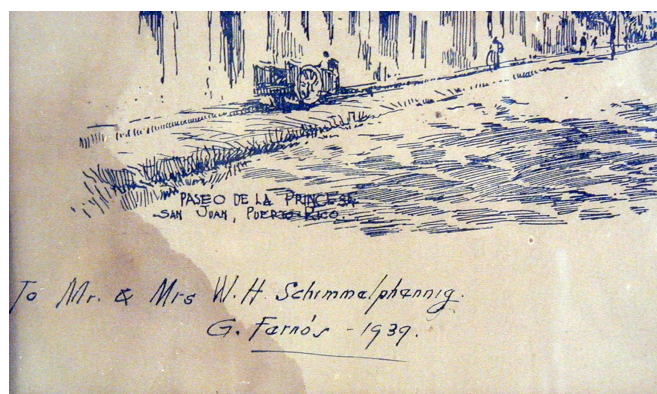 PASEO DE LA PRINCESA
SAN JUAN, PUERTO RICO.
To Mr. & Mrs W. H. Schimmelphennig.
G. Farnós - 1939.